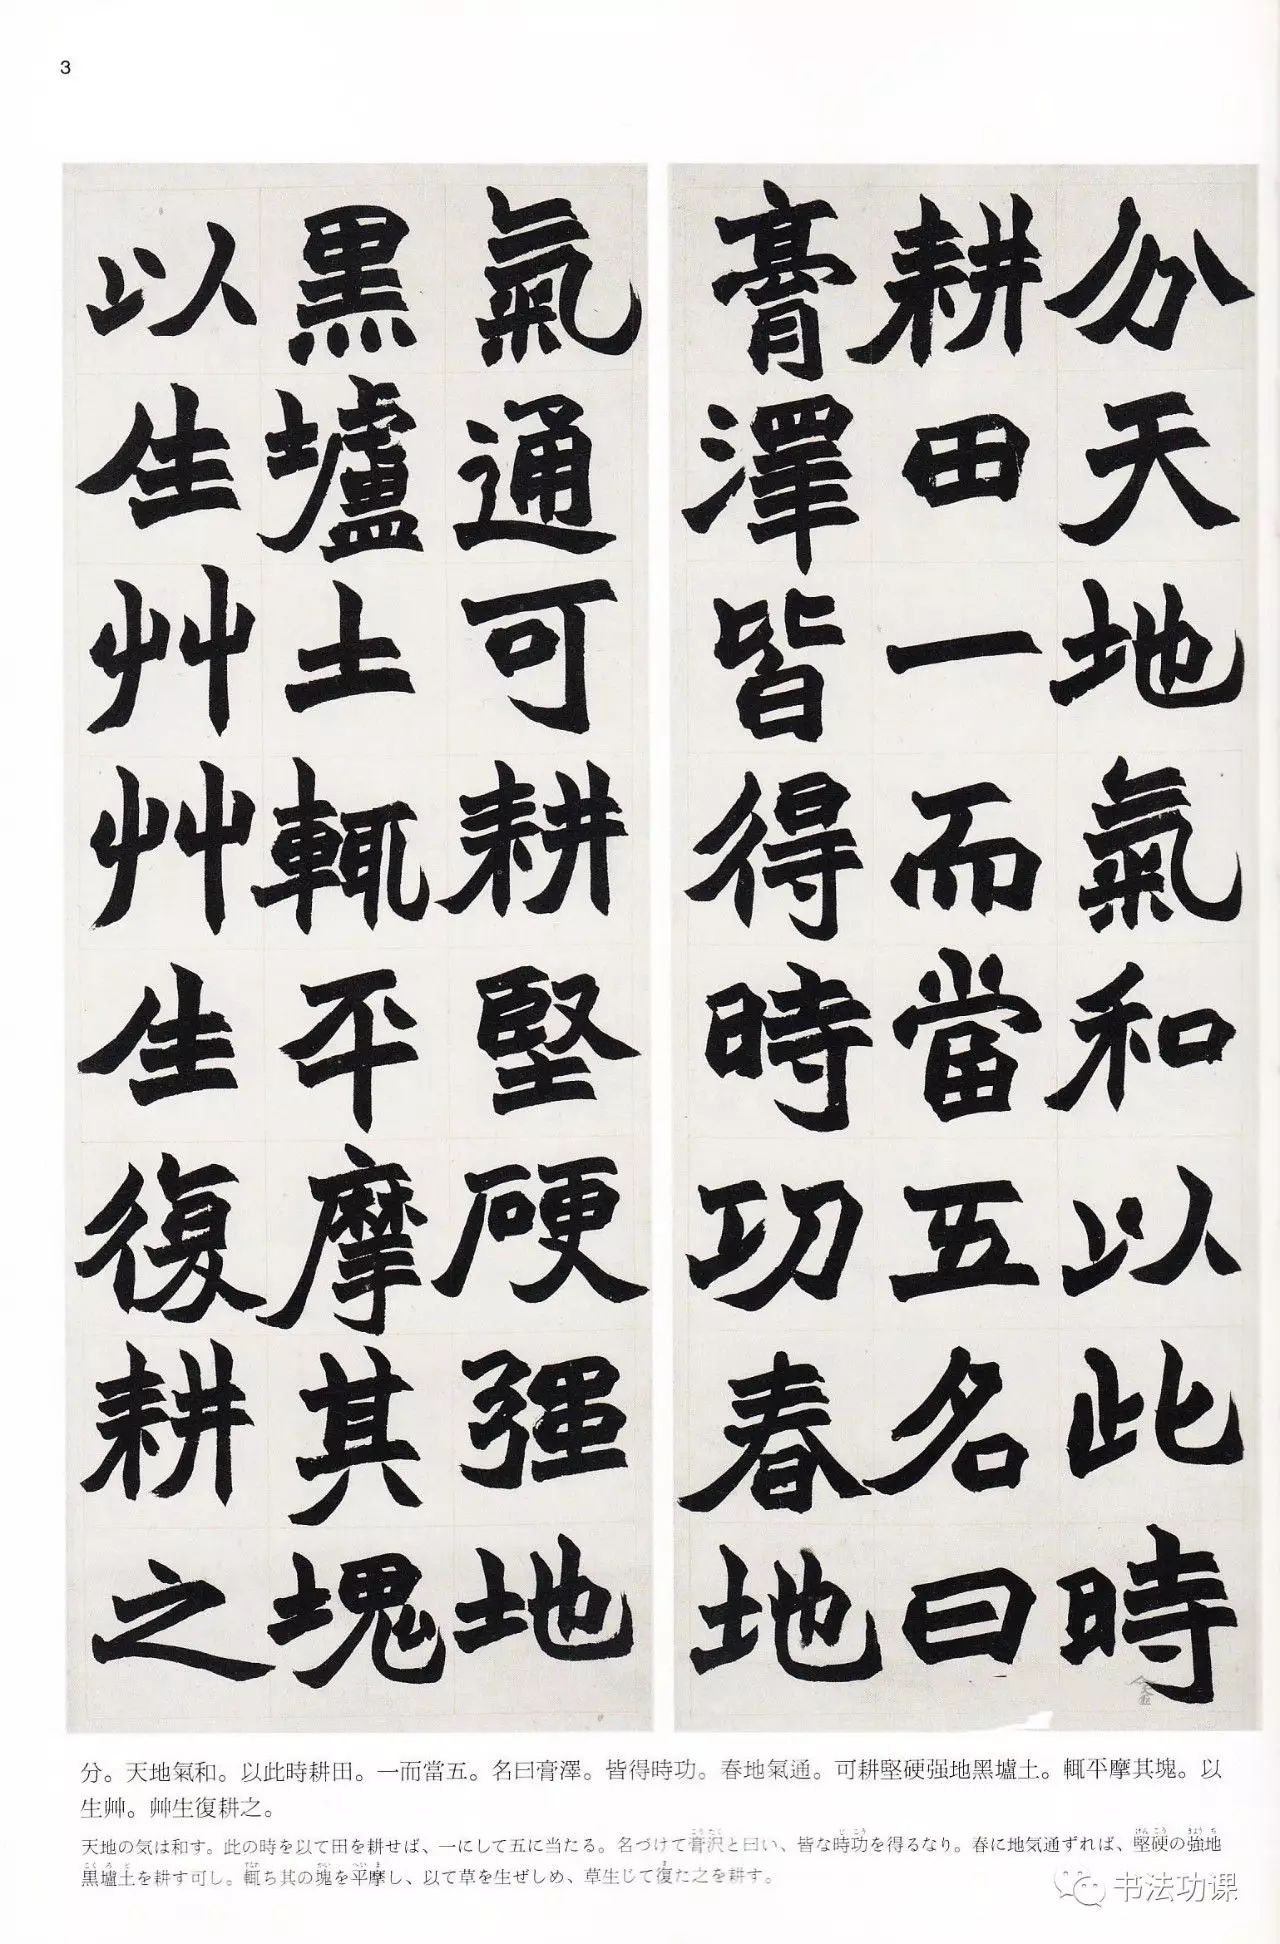 3
分天地氣和以此時
耕田一而當五名曰
膏澤皆得時功春地
氣通可耕堅硬强地
黑壚土輒平摩其塊
以生艸艸生復耕之
分。天地氣和。以此時耕田。一而當五。名曰膏澤。皆得時功。春地氣通。可耕堅硬强地黑壚土。輒平摩其塊。以
生艸。艸生復耕之。
天地の気は和す。此の時を以て田を耕せば、一にして五に当たる。名づけて膏沢と曰い、皆な時功を得るなり。春に地気通ずれば、堅硬の強地
黒壚土を耕す可し。輒ち其の塊を平摩し、以て草を生ぜしめ、草生じて復た之を耕す。
书法功课